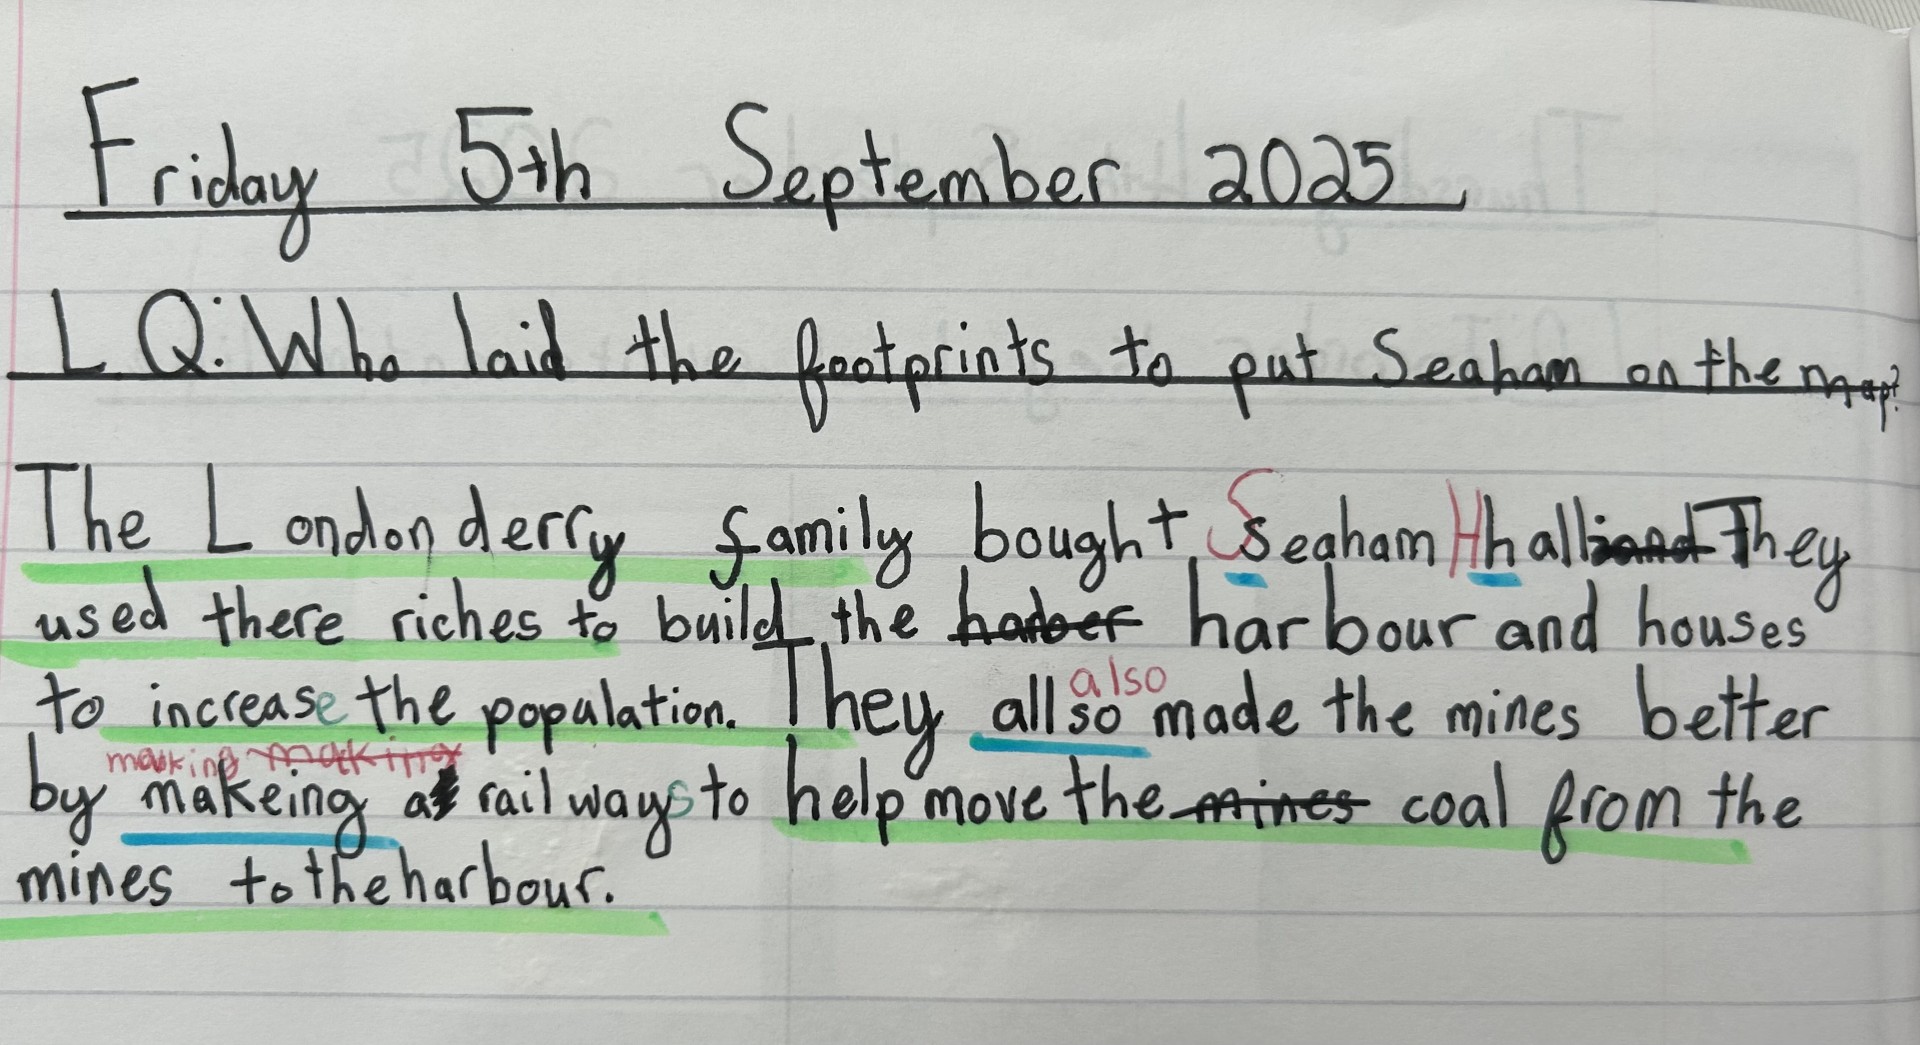 Friday 5th September 2025
LQ: Who laid the footprints to put Seaham on the map?
The Londonderry family bought Sseaham Hhall and They
used there riches to build the harber harbour and houses
to increase the population. They allso also made the mines better
making making
by makeing a railways to help move the mines coal from the
mines to the harbour.